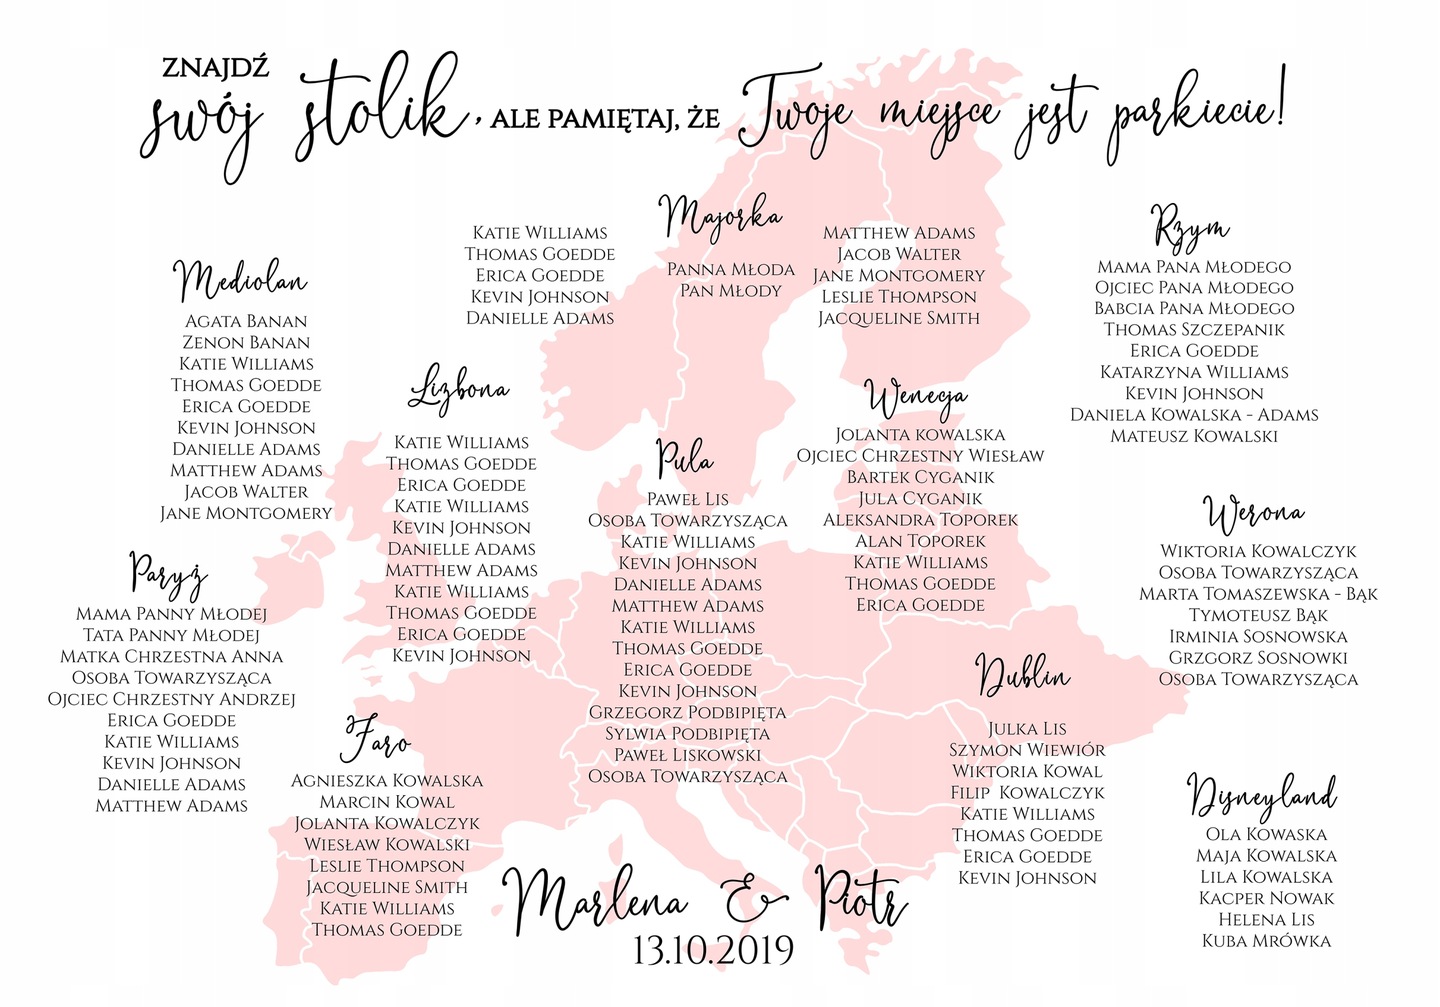 ZNAJDŹ
swój stolik, ALE PAMIĘTAJ, ŻE Twoje miejsce jest parkiecie!
Majorka
KATIE WILLIAMS
THOMAS GOEDDE
ERICA GOEDDE
KEVIN JOHNSON
DANIELLE ADAMS
PANNA MŁODA
PAN MŁODY
MATTHEW ADAMS
JACOB WALTER
JANE MONTGOMERY
LESLIE THOMPSON
JACQUELINE SMITH
Rzym
MAMA PANA MŁODEGO
OJCIEC PANA MŁODEGO
BABCIA PANA MŁODEGO
THOMAS SZCZEPANIK
ERICA GOEDDE
KATARZYNA WILLIAMS
KEVIN JOHNSON
DANIELA KOWALSKA - ADAMS
MATEUSZ KOWALSKI
Mediolan
AGATA BANAN
ZENON BANAN
KATIE WILLIAMS
THOMAS GOEDDE
ERICA GOEDDE
KEVIN JOHNSON
DANIELLE ADAMS
MATTHEW ADAMS
JACOB WALTER
JANE MONTGOMERY
Lizbona
KATIE WILLIAMS
THOMAS GOEDDE
ERICA GOEDDE
KATIE WILLIAMS
KEVIN JOHNSON
DANIELLE ADAMS
MATTHEW ADAMS
KATIE WILLIAMS
THOMAS GOEDDE
ERICA GOEDDE
KEVIN JOHNSON
Wenecja
JOLANTA KOWALSKA
OJCIEC CHRZESTNY WIESŁAW
BARTEK CYGANIK
JULA CYGANIK
ALEKSANDRA TOPOREK
ALAN TOPOREK
KATIE WILLIAMS
THOMAS GOEDDE
ERICA GOEDDE
Pula
PAWEŁ LIS
OSOBA TOWARZYSZĄCA
KATIE WILLIAMS
KEVIN JOHNSON
DANIELLE ADAMS
MATTHEW ADAMS
KATIE WILLIAMS
THOMAS GOEDDE
ERICA GOEDDE
KEVIN JOHNSON
GRZEGORZ PODBIPIĘTA
SYLWIA PODBIPIĘTA
PAWEŁ LISKOWSKI
OSOBA TOWARZYSZĄCA
Werona
WIKTORIA KOWALCZYK
OSOBA TOWARZYSZĄCA
MARTA TOMASZEWSKA - BĄK
TYMOTEUSZ BĄK
IRMINIA SOSNOWSKA
GRZGORZ SOSNOWKI
OSOBA TOWARZYSZĄCA
Paryż
MAMA PANNY MŁODEJ
TATA PANNY MŁODEJ
MATKA CHRZESTNA ANNA
OSOBA TOWARZYSZĄCA
OJCIEC CHRZESTNY ANDRZEJ
ERICA GOEDDE
KATIE WILLIAMS
KEVIN JOHNSON
DANIELLE ADAMS
MATTHEW ADAMS
Dublin
JULKA LIS
SZYMON WIEWIÓR
WIKTORIA KOWAL
FILIP KOWALCZYK
KATIE WILLIAMS
THOMAS GOEDDE
ERICA GOEDDE
KEVIN JOHNSON
Faro
AGNIESZKA KOWALSKA
MARCIN KOWAL
JOLANTA KOWALCZYK
WIESŁAW KOWALSKI
LESLIE THOMPSON
JACQUELINE SMITH
KATIE WILLIAMS
THOMAS GOEDDE
Disneyland
OLA KOWASKA
MAJA KOWALSKA
LILA KOWALSKA
KACPER NOWAK
HELENA LIS
KUBA MRÓWKA
Marlena & Piotr
13.10.2019